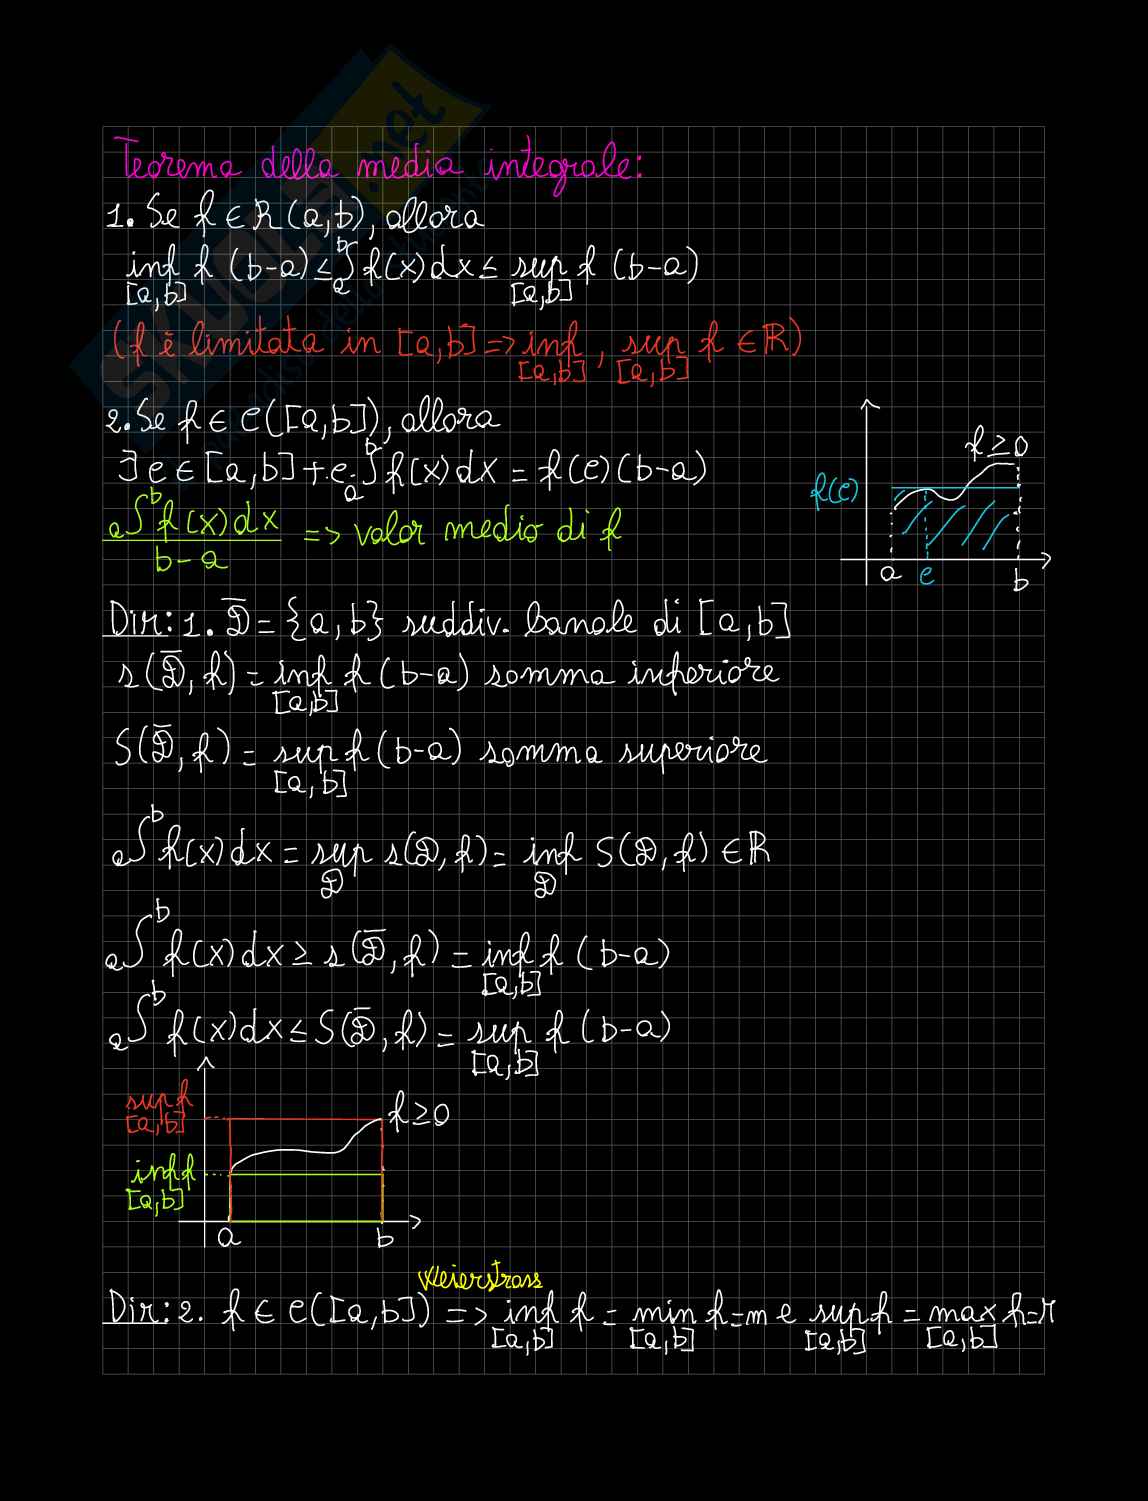 Teorema della media integrale:
1. Se f ∈ R(a,b), allora
inf f (b-a) ≤ a∫b f(x)dx ≤ sup f (b-a)
[a,b] [a,b]
(f è limitata in [a,b] => inf, sup f ∈ ℝ)
[a,b] [a,b]
2. Se f ∈ C([a,b]), allora
∃ c ∈ [a,b] t.c. a∫b f(x)dx = f(c)(b-a)
a∫b f(x)dx / b-a => valor medio di f
f ≥ 0
f(c)
a c b
Dim: 1. D̄ = {a,b} suddiv. banale di [a,b]
s(D̄,f) = inf f (b-a) somma inferiore
[a,b]
S(D̄,f) = sup f (b-a) somma superiore
[a,b]
a∫b f(x)dx = sup s(D,f) = inf S(D,f) ∈ ℝ
D D
a∫b f(x)dx ≥ s(D̄,f) = inf f (b-a)
[a,b]
a∫b f(x)dx ≤ S(D̄,f) = sup f (b-a)
[a,b]
sup f
[a,b]
f ≥ 0
inf f
[a,b]
a b
Weierstrass
Dim: 2. f ∈ C([a,b]) => inf f = min f = m e sup f = max f =
[a,b] [a,b] [a,b] [a,b]
SKUOLA.net